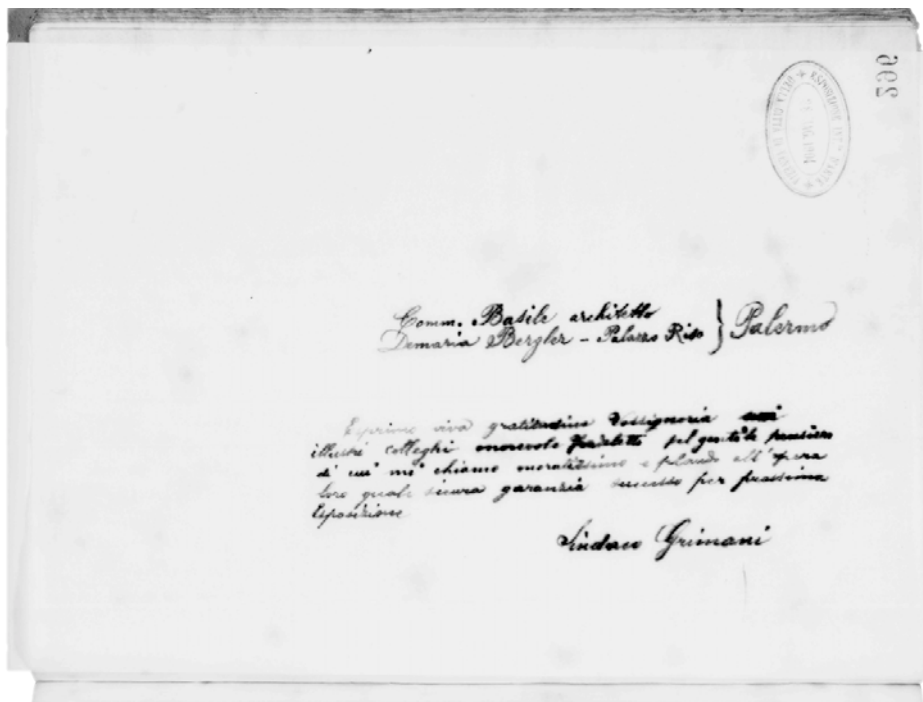 266
Comm. Basile architetto
Demaria Bergler - Palazzo Riso } Palermo
Esprimo viva gratitudine Vossignoria
illustri colleghi onorevole Fradeletto pel gentile pensiero
di cui mi chiamo onoratissimo e plaudo all'opera
loro quale sicura garanzia successo per prossima
Esposizione
Sindaco Grimani